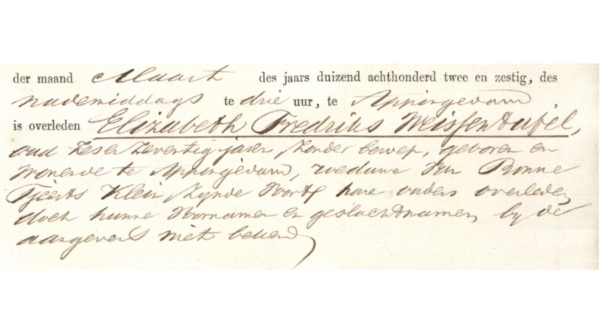 der maand Maart des jaars duizend achthonderd twee en zestig, des
namiddags te drie uur, te Appingedam
is overleden Elizabeth Fredriks Weissentafel,
oud zes en zeventig jaren zonder beroep, geboren en
wonende te Appingedam, weduwe van Bonne
Geerts Klein, zijnde voorts hare ouders overleden,
doch hunne voornamen en geslachtnamen, bij de
aangevers niet bekend